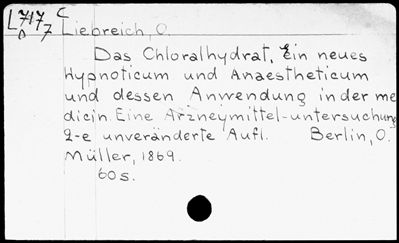 L717 C
D 7
Liebreich, O.
Das Chloralhydrat, Ein neues
Hypnoticum und Anaestheticum
und dessen Anwendung in der me
dicin. Eine Arzneymittel-untersuchung
2-e unveränderte Aufl. Berlin, O.
Müller, 1869.
60s.